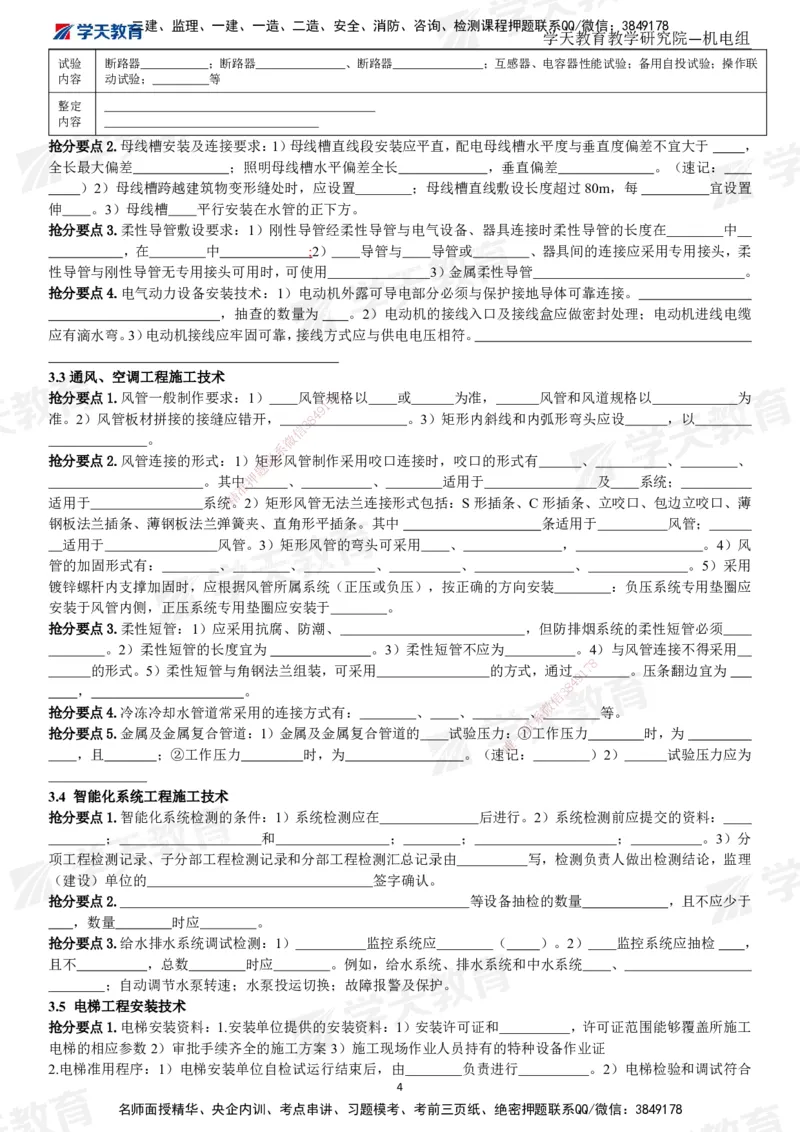 二建、监理、一建、一造、二造、安全、消防、咨询、检测课程押题联系QQ/微信：3849178
学天教育
学天教育教学研究院—机电组
试验内容 断路器___________；断路器________________、断路器________________；互感器、电容器性能试验；备用自投试验；操作联动试验；__________等
整定内容 ________________________________________________
______________________________________
抢分要点2.母线槽安装及连接要求：1）母线槽直线段安装应平直，配电母线槽水平度与垂直度偏差不宜大于_____，
全长最大偏差______________；照明母线槽水平偏差全长_____________，垂直偏差______________。（速记：____
____）2）母线槽跨越建筑物变形缝处时，应设置________；母线槽直线敷设长度超过80m，每__________宜设置
伸____。3）母线槽____平行安装在水管的正下方。
抢分要点3.柔性导管敷设要求：1）刚性导管经柔性导管与电气设备、器具连接时柔性导管的长度在________中__
__________，在________中____________;2）____导管与____导管或________、器具间的连接应采用专用接头，柔
性导管与刚性导管无专用接头可用时，可使用______________3）金属柔性导管______________________________。
抢分要点4.电气动力设备安装技术：1）电动机外露可导电部分必须与保护接地导体可靠连接。________________
________________________，抽查的数量为____。2）电动机的接线入口及接线盒应做密封处理；电动机进线电缆
应有滴水弯。3）电动机接线应牢固可靠，接线方式应与供电电压相符。________________________________________
__________________________________________
3.3通风、空调工程施工技术
抢分要点1.风管一般制作要求：1）____风管规格以____或______为准，______风管和风道规格以____________为
准。2）风管板材拼接的接缝应错开，__________________。3）矩形内斜线和内弧形弯头应设______，以________
______________。
抢分要点2.风管连接的形式：1）矩形风管制作采用咬口连接时，咬口的形式有______、__________、________、
______________________。其中______、__________、________适用于________________及____系统；__________
适用于________________系统。2）矩形风管无法兰连接形式包括：S形插条、C形插条、立咬口、包边立咬口、薄
钢板法兰插条、薄钢板法兰弹簧夹、直角形平插条。其中____________________条适用于__________风管；______
__适用于________________风管。3）矩形风管的弯头可采用____、______________，__________________。4）风
管的加固形式有：________、________、__________、__________、______________、______________。5）采用
镀锌螺杆内支撑加固时，应根据风管所属系统（正压或负压），按正确的方向安装________：负压系统专用垫圈应
安装于风管内侧，正压系统专用垫圈应安装于________。
抢分要点3.柔性短管：1）应采用抗腐、防潮、__________________________，但防排烟系统的柔性短管必须____
________。2）柔性短管的长度宜为______________。3）柔性短管不应为__________。4）与风管连接不得采用__
______的形式。5）柔性短管与角钢法兰组装，可采用________________的方式，通过________。压条翻边宜为___
____，______________________。
抢分要点4.冷冻冷却水管道常采用的连接方式有：________、____、________、__________等。
抢分要点5.金属及金属复合管道：1）金属及金属复合管道的____试验压力：①工作压力________时，为_________
____，且________；②工作压力_________时，为_________________。（速记：________）2）______试验压力应为
______________
3.4 智能化系统工程施工技术
抢分要点1.智能化系统检测的条件：1）系统检测应在______________后进行。2）系统检测前应提交的资料：____
________；____________________和________________；________；____________________；__________。3）分
项工程检测记录、子分部工程检测记录和分部工程检测汇总记录由__________写，检测负责人做出检测结论，监理
（建设）单位的________________________________签字确认。
抢分要点2.__________________________________________________等设备抽检的数量____________，且不应少于
___，数量________时应________。
抢分要点3.给水排水系统调试检测：1）__________监控系统应________（_____）。2）____监控系统应抽检____，
且不__________，总数________时应________。例如，给水系统、排水系统和中水系统____、__________________
________；自动调节水泵转速；水泵投运切换；故障报警及保护。
3.5 电梯工程安装技术
抢分要点1.电梯安装资料：1.安装单位提供的安装资料：1）安装许可证和__________，许可证范围能够覆盖所施工
电梯的相应参数 2）审批手续齐全的施工方案 3）施工现场作业人员持有的特种设备作业证
2.电梯准用程序：1）电梯安装单位自检试运行结束后，由________负责进行__________。2）电梯检验和调试符合
4
名师面授精华、央企内训、考点串讲、习题模考、考前三页纸、绝密押题联系QQ/微信：3849178